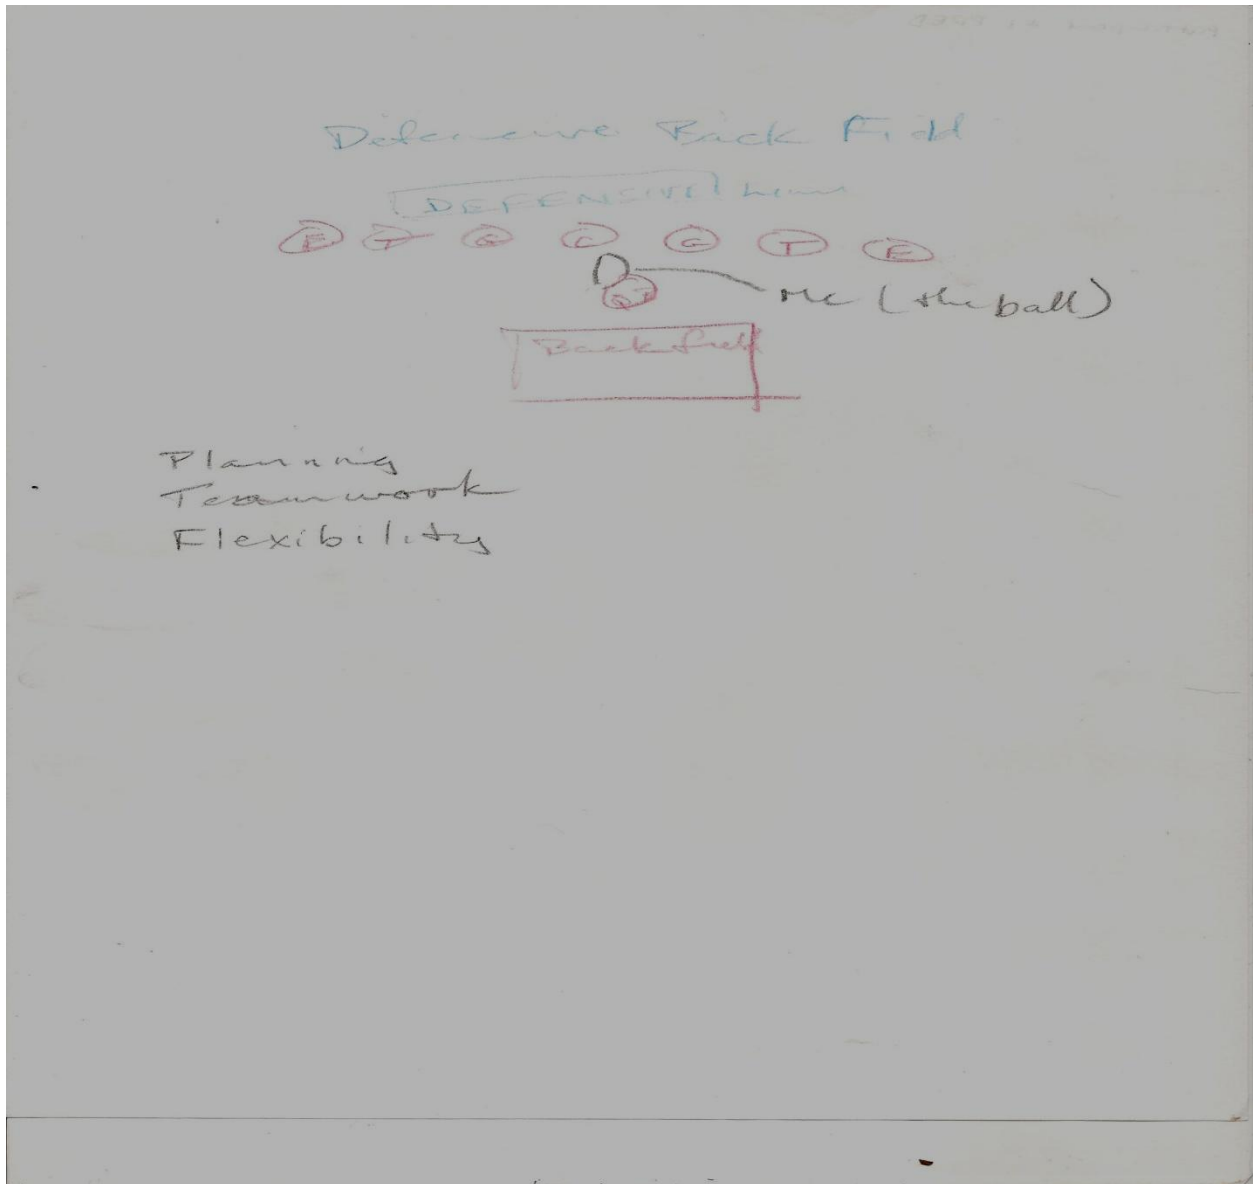 Defensive Back Field
DEFENSIVE Line
E T G C G T E
Me (the ball)
Back field
Planning
Teamwork
Flexibility